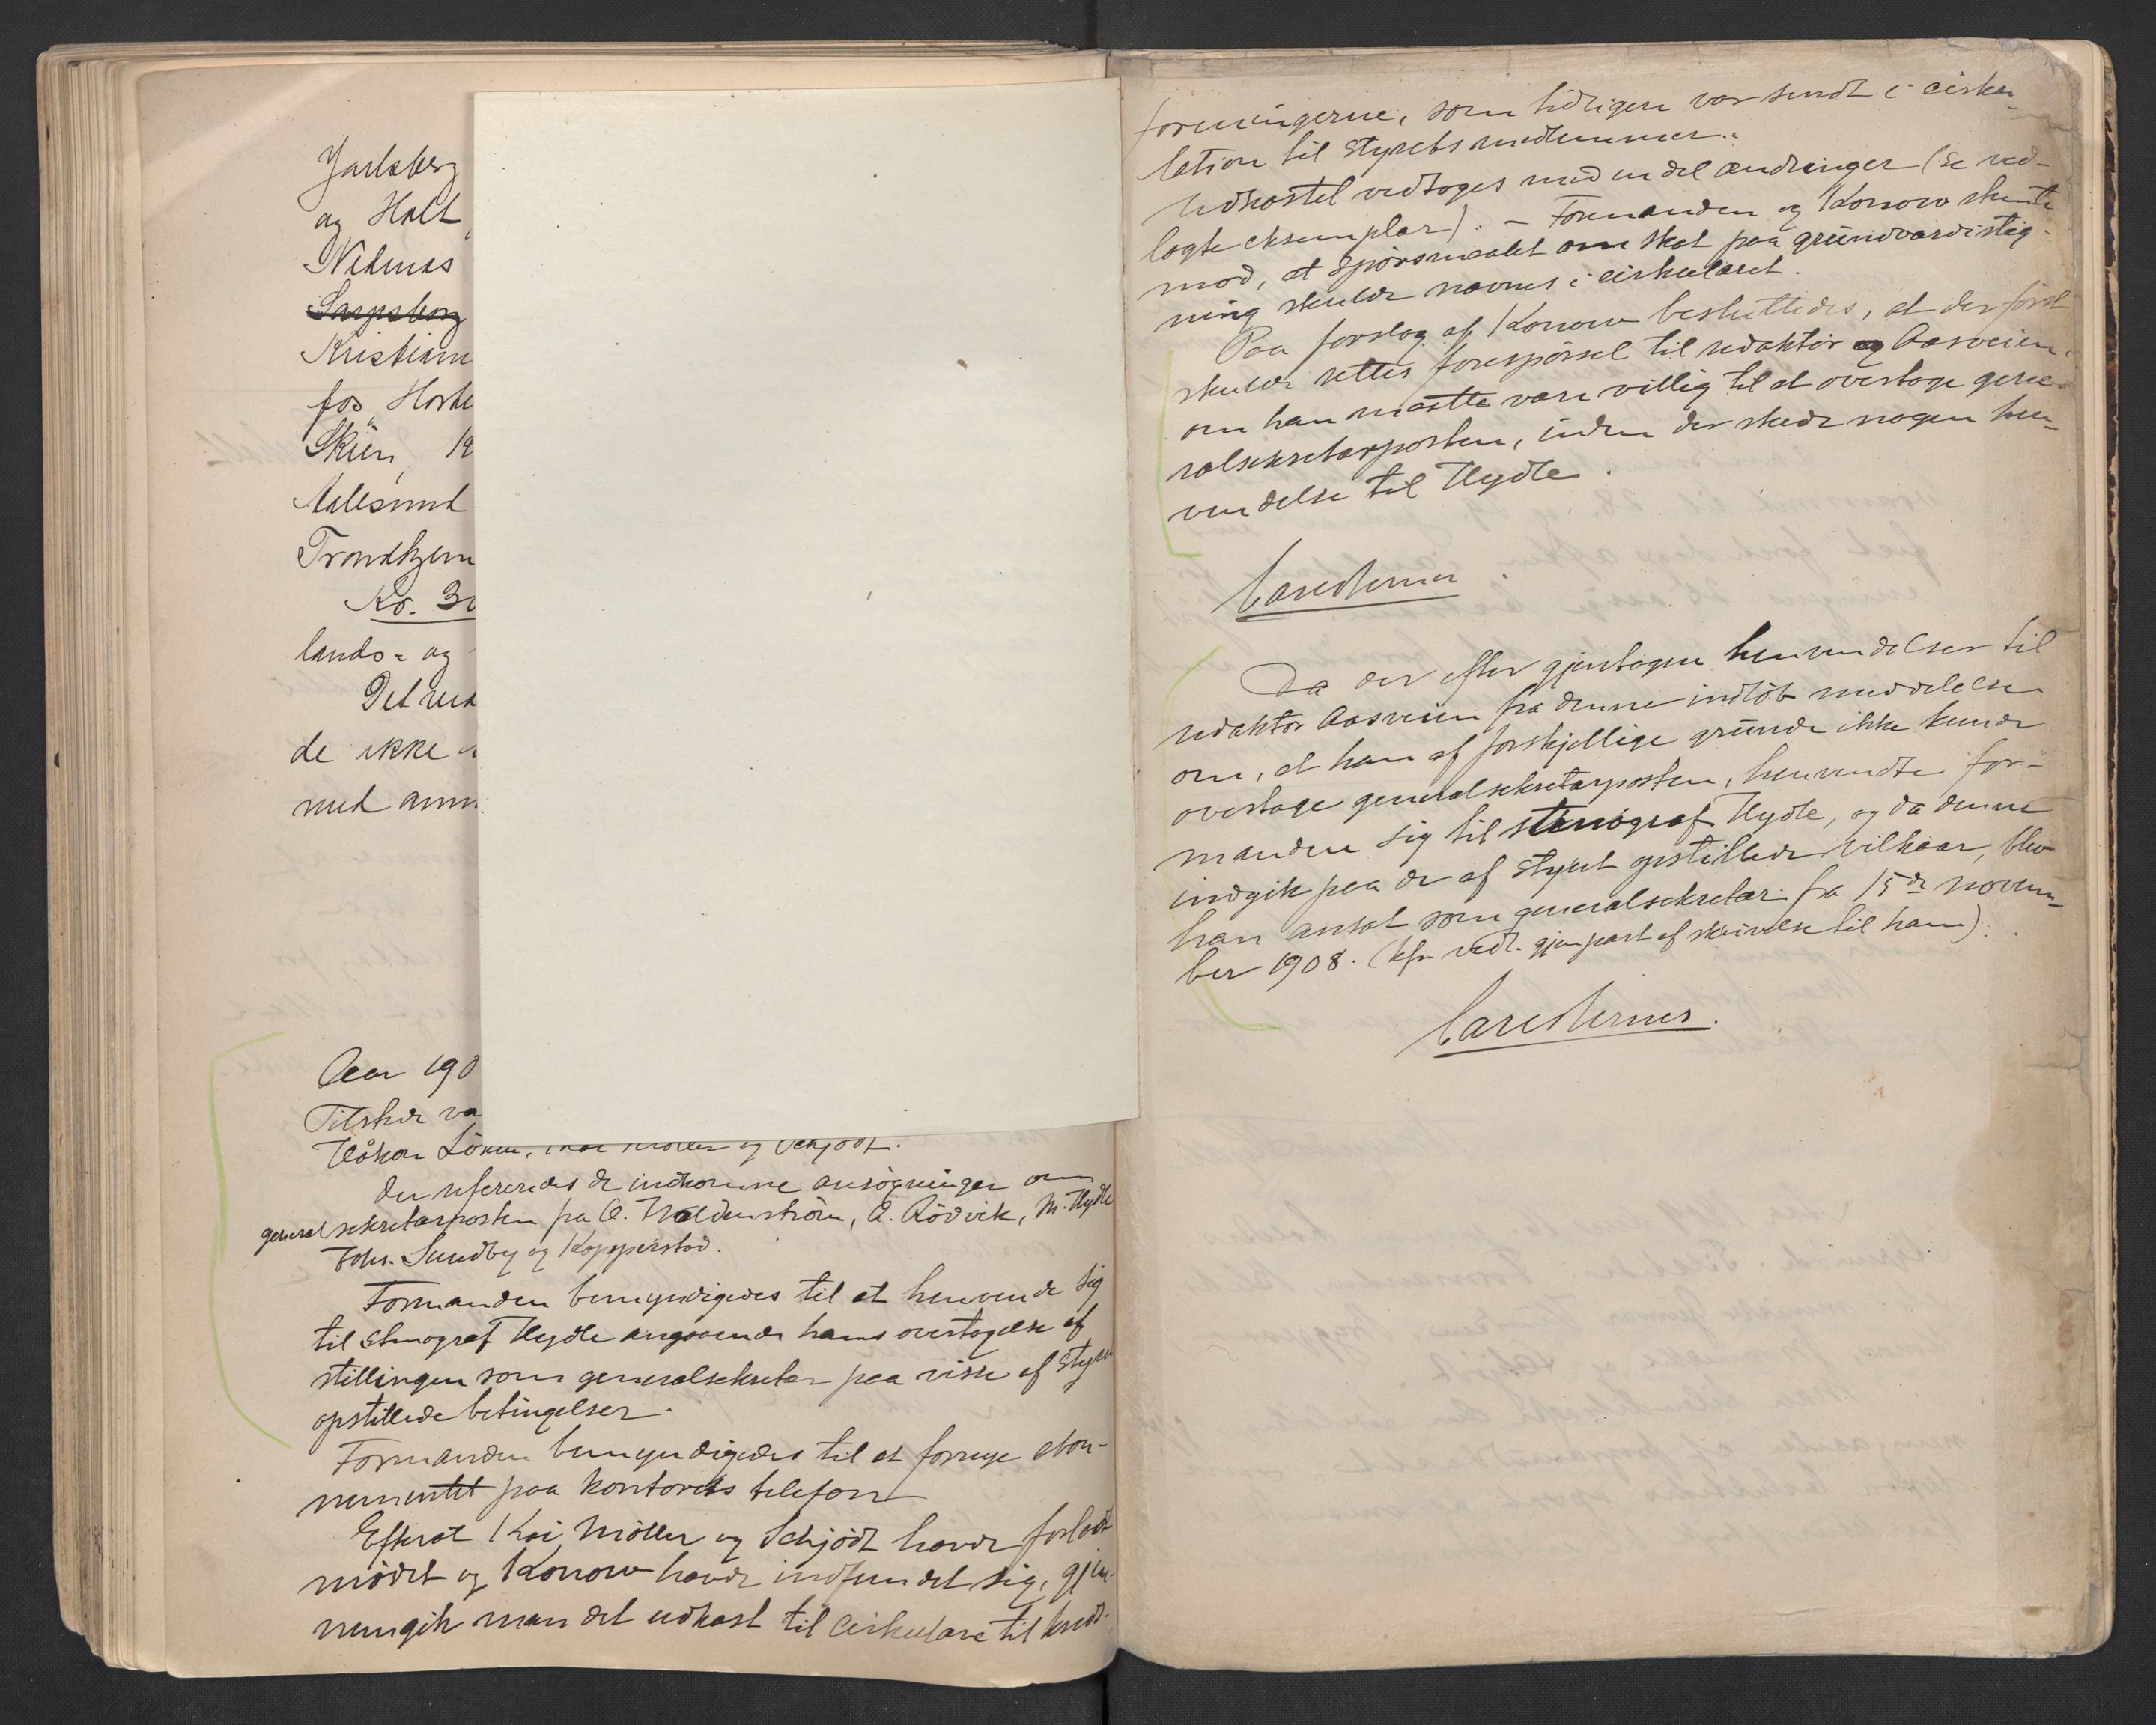 Jarlsberg
og Holt
Nedenes
Sarpsborg
Kristian
fos, Horte
Skien,
Aalesund
Trondhjem
Kr. 30
lands- og
Det ved
de ikke
med ann
Aar 190
Tilstede va
Håkon Löken, Møller og Schjödt.
Der refereredes de indkomne ansøgninger om
generalsekretærposten fra O. Waldenström, A. Rödvik, M. Hydle
Johs. Sundby og Kopperstad.
Formanden bemyndigedes til at henvende sig
til stenograf Hydle angaaende hans overtagelse af
stillingen som generalsekretær paa visse af styre
opstillede betingelser.
Formanden bemyndigedes til at fornye abon-
nementet paa kontorets telefon
Efterat Kai Möller og Schjödt havde forladt
mödet og Konow havde indfundet sig, gjen-
nemgik man det udkast til cirkulære til kreds-
foreningerne, som tidligere var sendt i cirku-
lation til styrets medlemmer.
Udkastet vedtoges med en del ændringer (se ved-
lagte eksemplar). – Formanden og Konow stemte
mod, at spörsmaalet om skat paa grundværdistig-
ning skulde nævnes i cirkulæret.
Paa forslag af Konow besluttedes, at der först
skulde rettes forespörsel til redaktör Aasveien,
om han maatte være villig til at overtage gene-
ralsekretærposten, inden der skede nogen hen-
vendelse til Hydle.
Da der efter gjentagen henvendelser til
redaktör Aasveien fra denne indlöb meddelelse
om, at han af forskjellige grunde ikke kunde
overtage generalsekretærposten, henvendte for-
manden sig til stenograf Hydle, og da denne
indgik paa de af styret opstillede vilkaar, blev
han ansat som generalsekretær fra 15de novem-
ber 1908. (kfr vedl. gjenpart af skrivelse til ham).